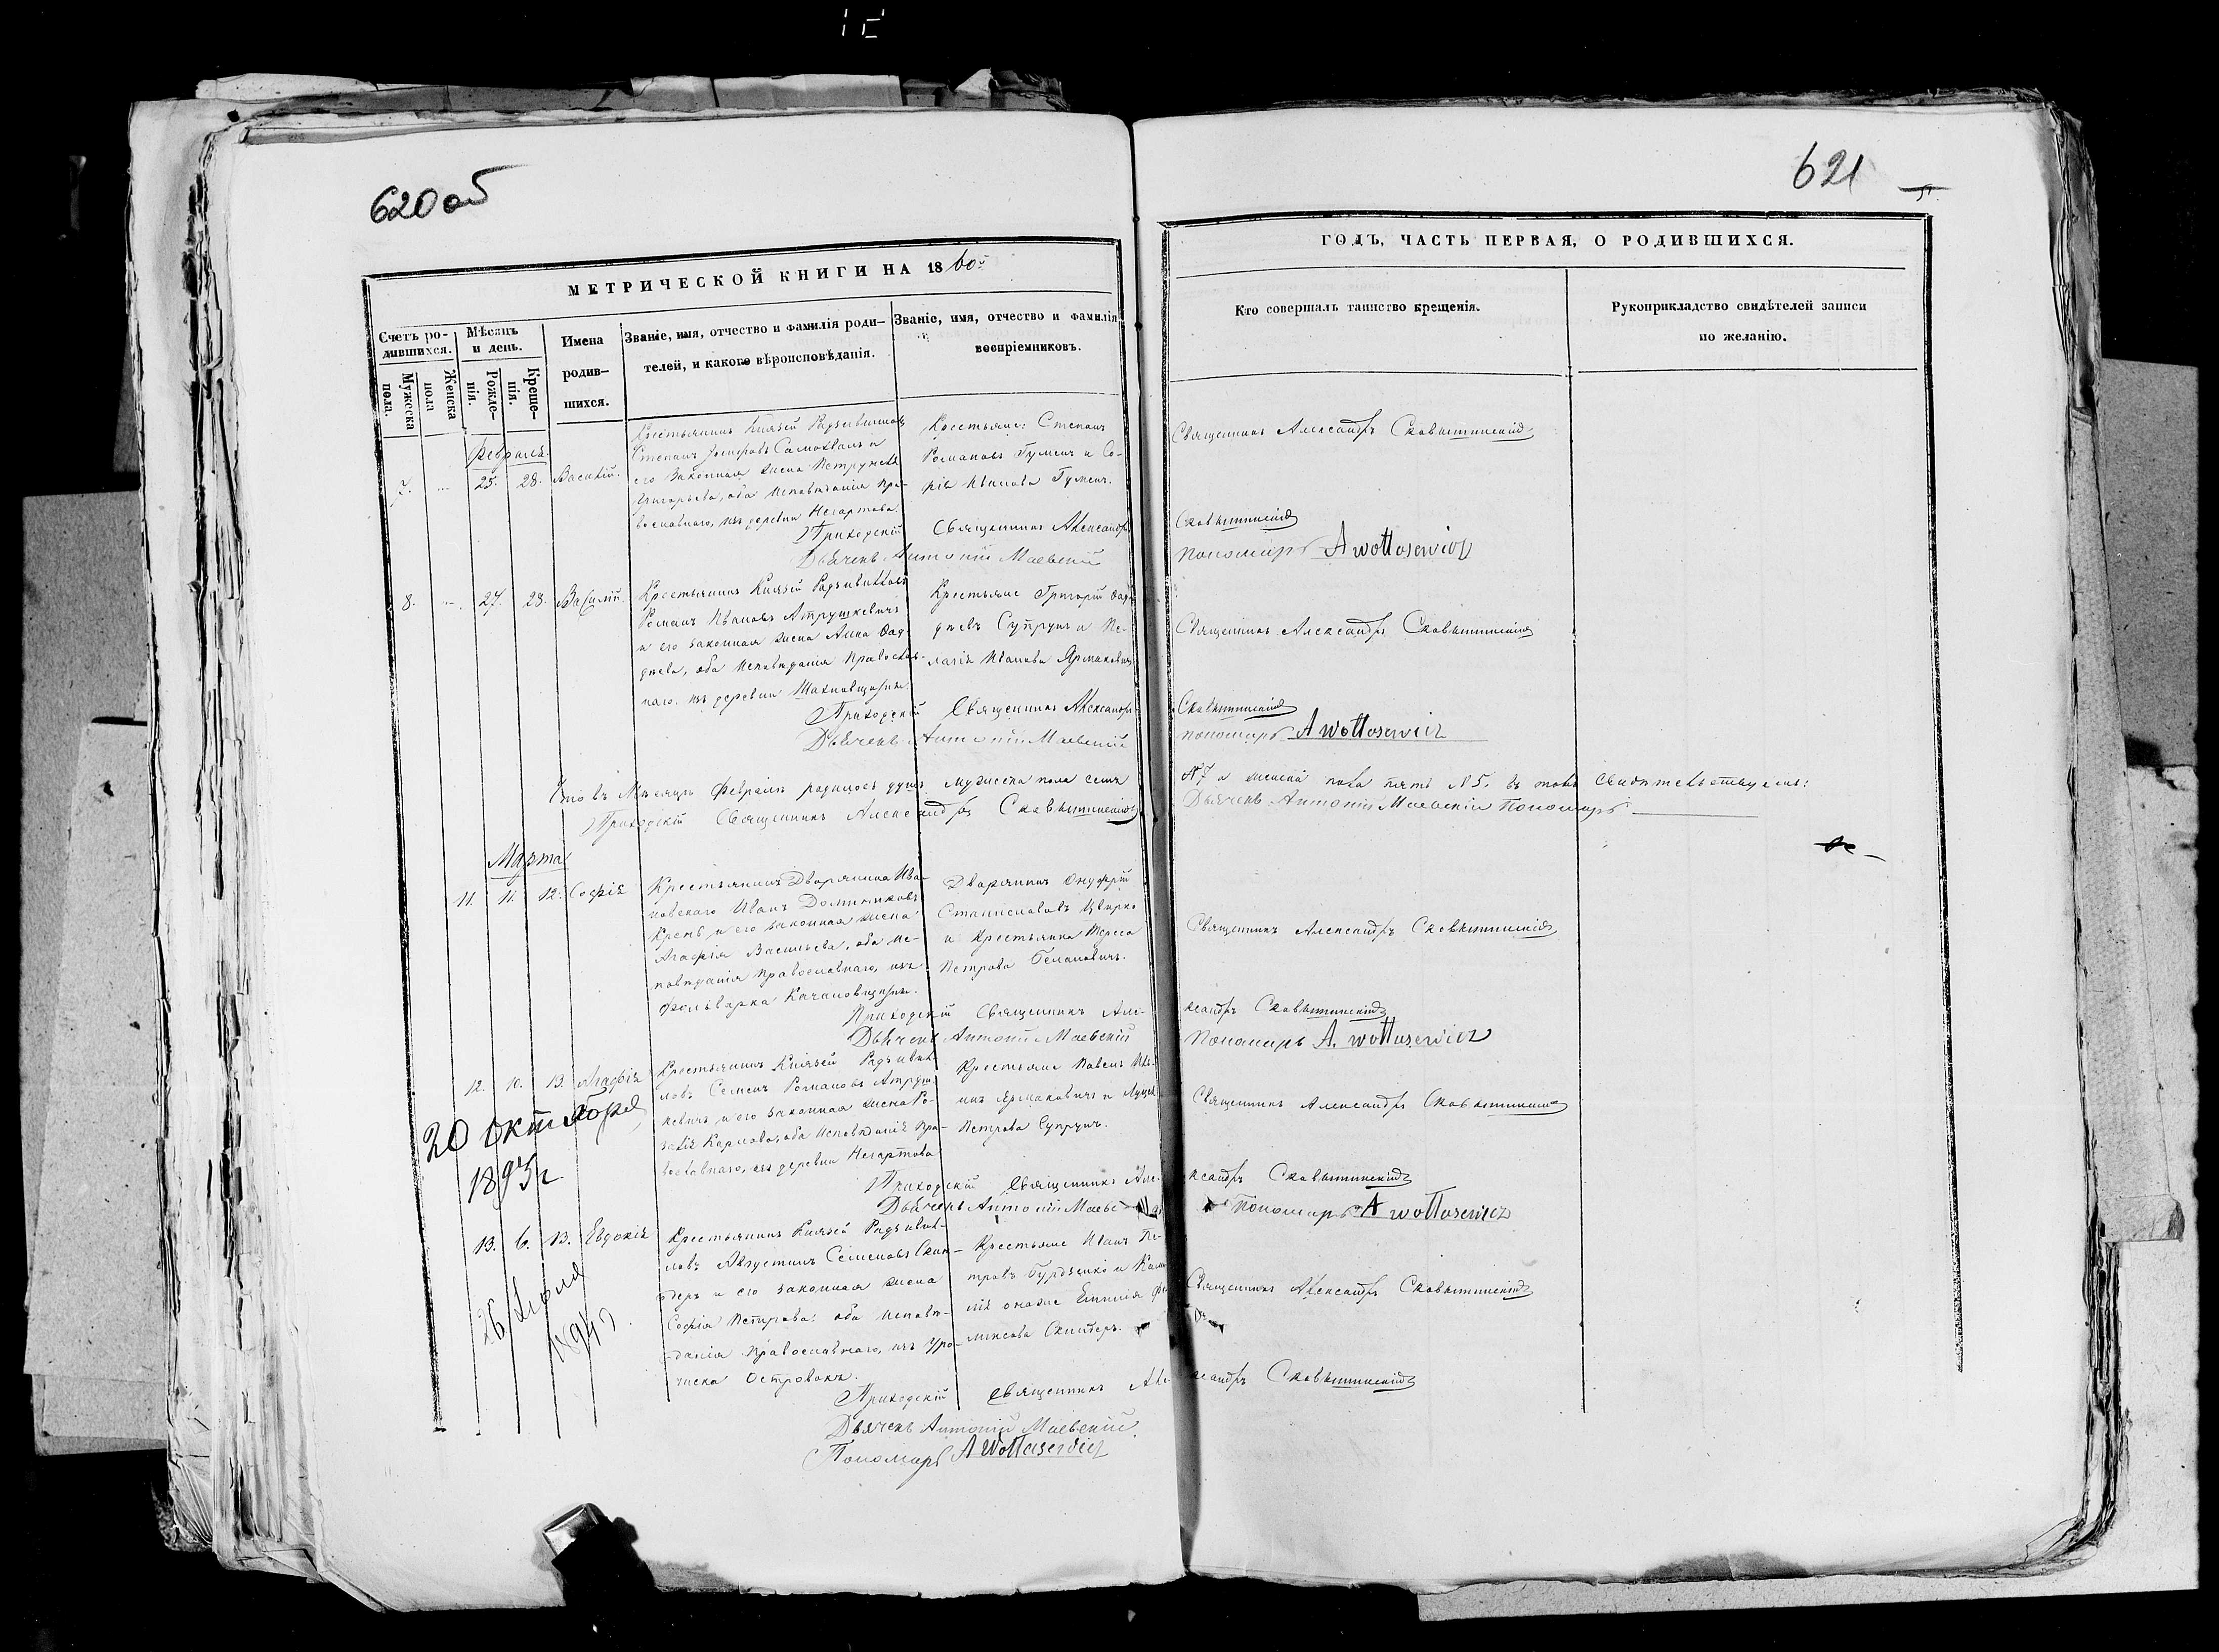 620 об
621
МЕТРИЧЕСКОЙ КНИГИ НА 1860й
ГОДЪ, ЧАСТЬ ПЕРВАЯ, О РОДИВШИХСЯ.
Счетъ ро-
дившихся.
Мужеска
пола.
Женска
пола
Мѣсяцъ
и день.
Рожде-
нія.
Креще-
нія.
Имена
родив-
шихся.
Званіе, имя, отчество и фамилія роди-
телей, и какого вѣроисповѣданія.
Званіе, имя, отчество и фамилія
воспріемниковъ.
Кто совершалъ таинство крещенія.
Рукоприкладство свидѣтелей записи
по желанію.
Февраля
7. 25. 28. Василій.
Крестьянинъ Князей Радзивилловъ
Степанъ Самохвалъ и
его законная жена Петрунеля
Григорьева, оба исповѣданія Пра-
вославнаго, изъ деревни Негартова.
Крестьяне: Степанъ
Романовъ Гуменъ и Со-
фія Иванова Гуменъ.
Священникъ Александръ Сковытинскій
Приходскій Священникъ Александръ Сковытинскій
Дьячекъ Антоній Маевскій Пономарь A Wottosewicz
8. 27. 28. Василій.
Крестьянинъ Князей Радзивилловъ
Романъ Ивановъ Атрушкевичъ
и его законная жена Анна Фад-
дѣева, оба исповѣданія Православ-
наго, изъ деревни
Крестьяне Григорій Фад-
дѣевъ Супрунъ и Пе-
лагія Иванова Ярмаковичъ
Священникъ Александръ Сковытинскій
Приходскій Священникъ Александръ Сковытинскій
Дьячекъ Антоній Маевскій пономарь A Wottosewicz
Что въ Мѣсяцѣ Февралѣ родилось душъ мужеска пола семь № 7 и женска пола пять № 5. въ томъ свидѣтельствуемъ:
Приходскій Священникъ Александръ Сковытинскій Дьячекъ Антоній Маевскій Пономарь
Марта
11. 11. 12. Софія
Крестьянинъ Дворянина Ива-
новскаго Иванъ Доминиковъ
и его законная жена
Агафія Васильева, оба ис-
повѣданія Православнаго, изъ
фольварка Качановщизны.
Дворянинъ Онуфрій
Станиславовъ Цвирко
и Крестьянка Тереса
Петрова
Священникъ Александръ Сковытинскій
Приходскій Священникъ Александръ Сковытинскій
Дьячекъ Антоній Маевскій Пономарь A. Wottosewicz
12. 10. 13. Агафія
Крестьянинъ Князей Радзивил-
ловъ Семенъ Романовъ Атруш-
кевичъ и его законная жена Ро-
залія Карпова, оба исповѣданія Пра-
вославнаго, изъ деревни Негартова
Крестьяне Павелъ Ива-
нъ Ярмаковичъ и
Петрова Супрунъ.
Священникъ Александръ Сковытинскій
20 Октября
1893 г
Приходскій Священникъ Александръ Сковытинскій
Дьячекъ Антоній Пономарь A Wottosewicz
13. 6. 13. Евдокія
Крестьянинъ Князей Радзивил-
ловъ Августинъ Семеновъ Скин-
деръ и его законная жена
Софія Петрова: оба исповѣ-
данія Православнаго, изъ Уро-
чиска Островокъ.
Крестьяне Иванъ Пе-
тровъ и
Скиндеръ.
Священникъ Александръ Сковытинскій
26
Приходскій Священникъ Александръ Сковытинскій
Дьячекъ Антоній Маевскій.
Пономарь A Wottosewicz